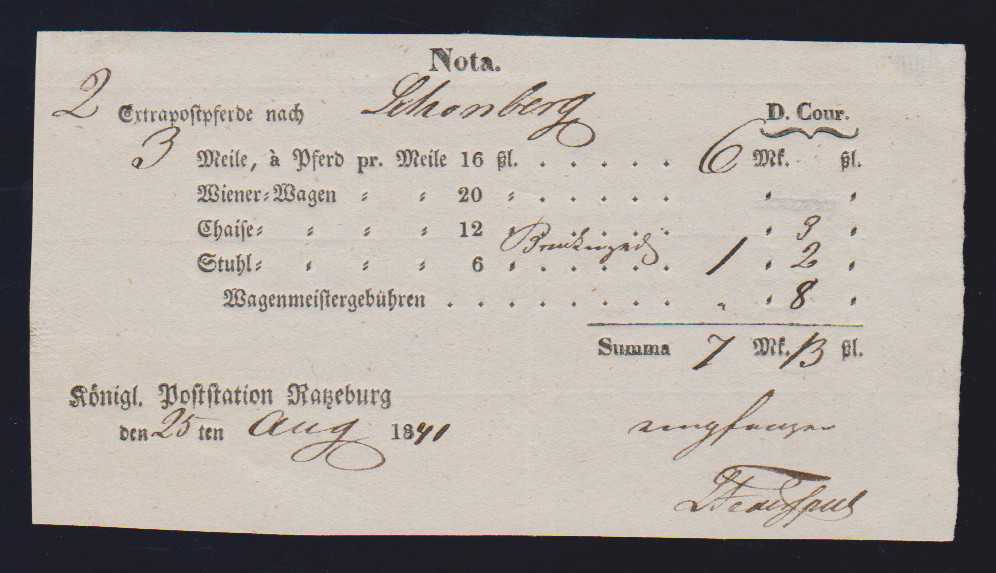 Nota.
2 Extrapostpferde nach Schonberg D. Cour.
3 Meile, à Pferd pr. Meile 16 ßl. . . . . . 6 Mk. ßl.
Wiener-Wagen „ „ 20 „ . . . . . „ „
Chaise- „ „ „ 12 „ . . . . . „ 3 „
Stuhl- „ „ „ 6 „ . . . . . 1 „ 2 „
Wagenmeistergebühren . . . . . . . . „ „ 8 „
Summa 7 Mk. 13 ßl.
Königl. Poststation Ratzeburg
den 25 ten Aug 1841
empfangen